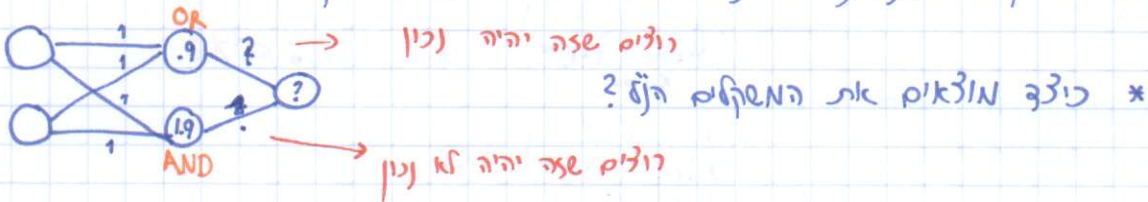 OR
1
1
.9
?
רוצים שזה יהיה נכון
?
* כיצד מוצאים את המשקלים הנ"ל?
1
1.9
?
1
AND
רוצים שזה יהיה לא נכון